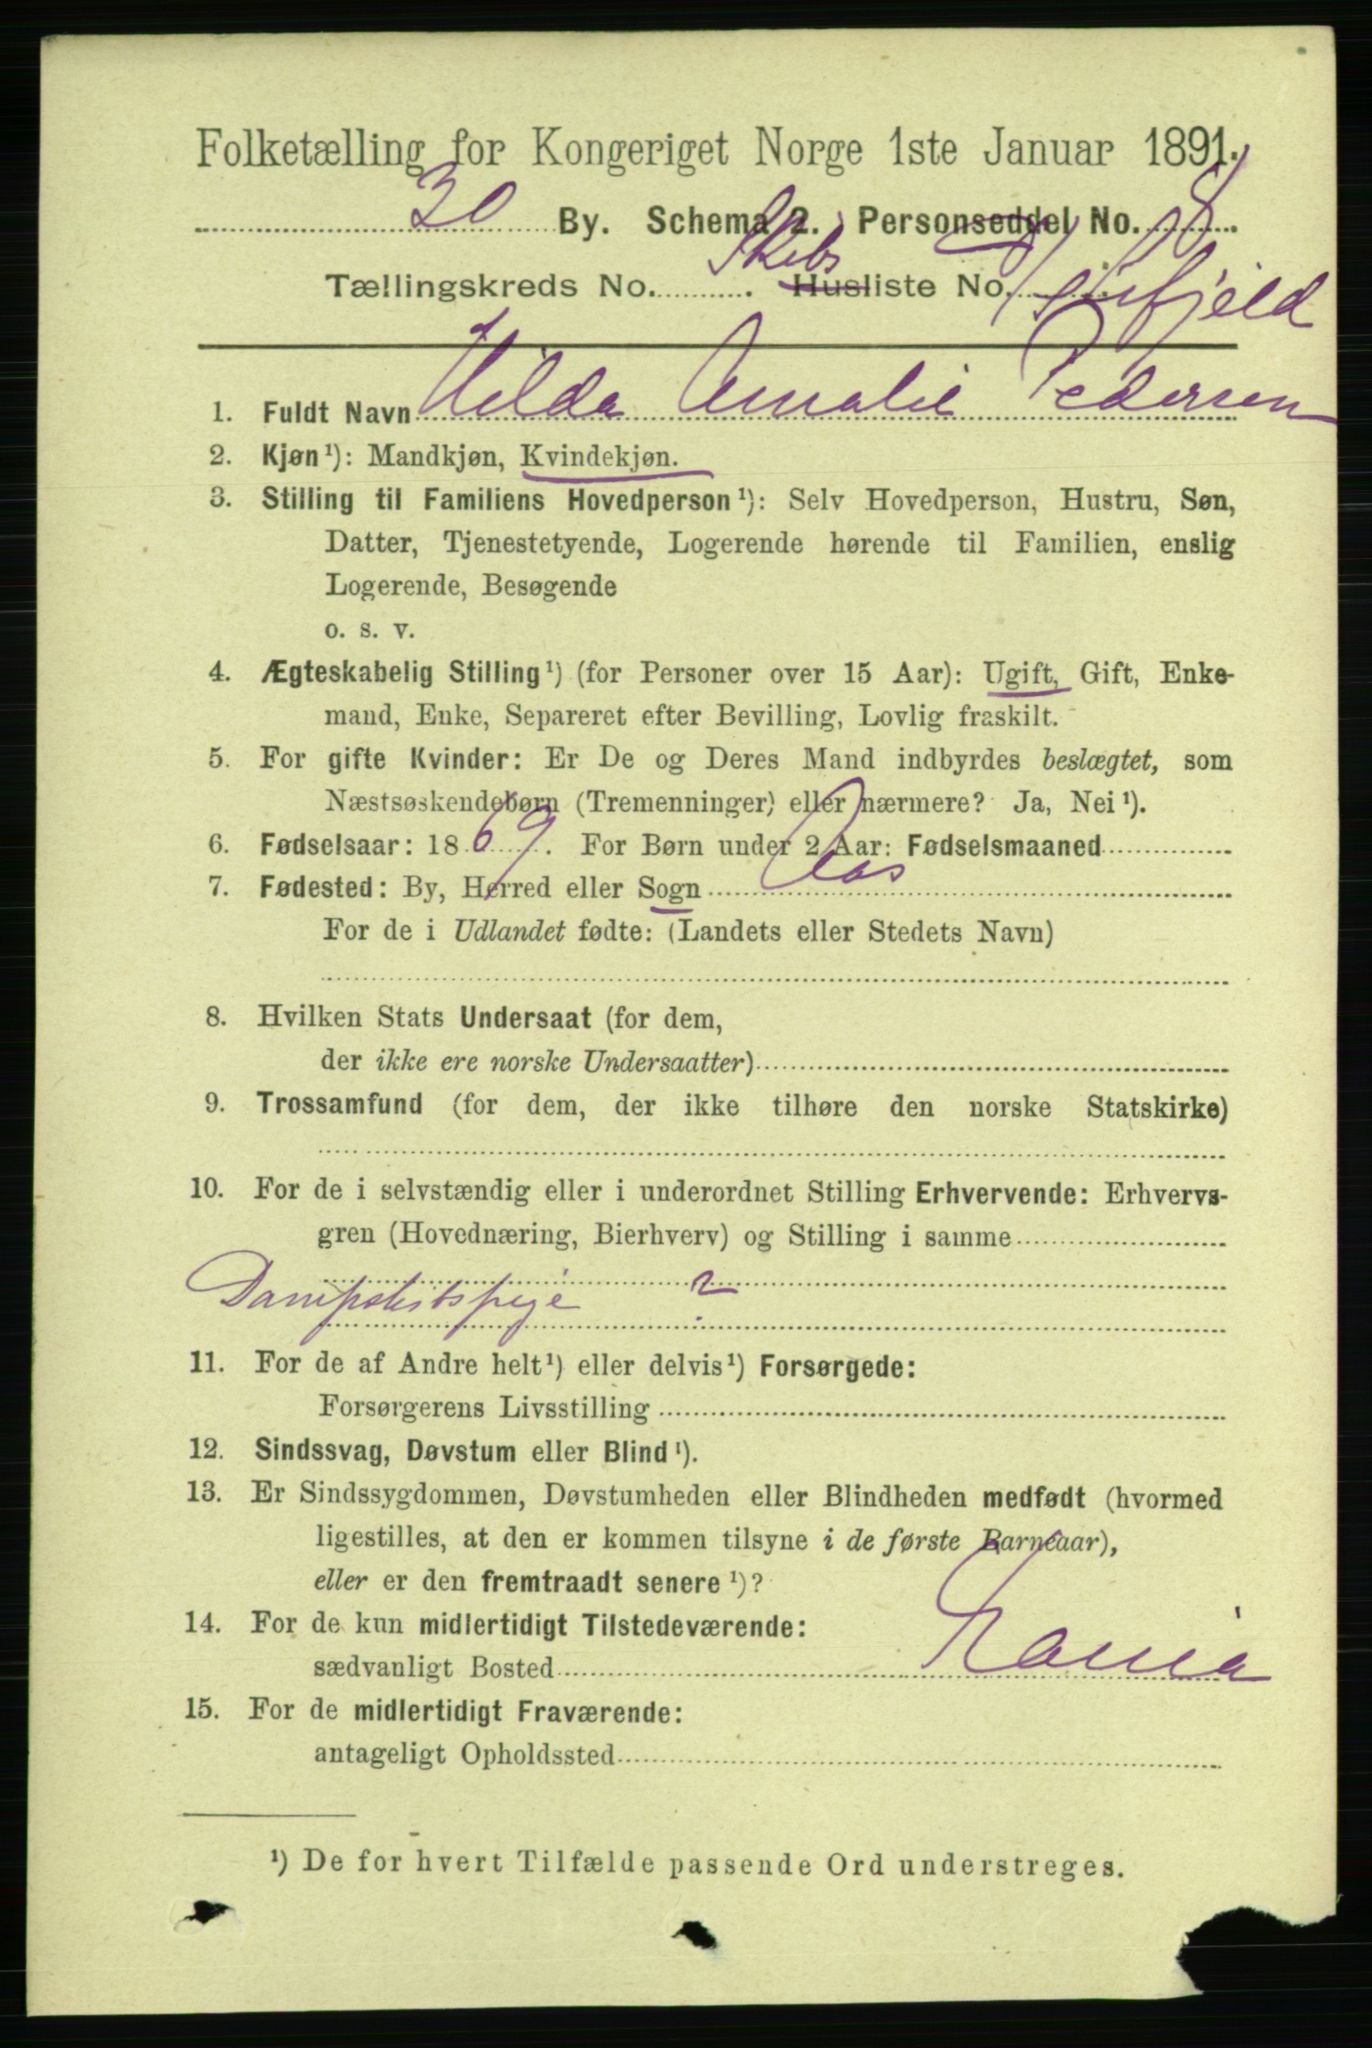 Folketælling for Kongeriget Norge 1ste Januar 1891.
30 By. Schema 2. Personseddel No. 8
Tællingskreds No. Skibs Husliste No. fjeld
1. Fuldt Navn Hilda Amalie Pedersen
2. Kjøn¹): Mandkjøn, Kvindekjøn.
3. Stilling til Familiens Hovedperson¹): Selv Hovedperson, Hustru, Søn,
Datter, Tjenestetyende, Logerende hørende til Familien, enslig
Logerende, Besøgende
o. s. v.
4. Ægteskabelig Stilling¹) (for Personer over 15 Aar): Ugift, Gift, Enke-
mand, Enke, Separeret efter Bevilling, Lovlig fraskilt.
5. For gifte Kvinder: Er De og Deres Mand indbyrdes beslægtet, som
Næstsøskendebørn (Tremenninger) eller nærmere? Ja, Nei¹).
6. Fødselsaar: 1869. For Børn under 2 Aar: Fødselsmaaned
7. Fødested: By, Herred eller Sogn Aas
For de i Udlandet fødte: (Landets eller Stedets Navn)
8. Hvilken Stats Undersaat (for dem,
der ikke ere norske Undersaatter)
9. Trossamfund (for dem, der ikke tilhøre den norske Statskirke)
10. For de i selvstændig eller i underordnet Stilling Erhvervende: Erhvervs-
gren (Hovednæring, Bierhverv) og Stilling i samme
Dampskibspige ?
11. For de af Andre helt¹) eller delvis¹) Forsørgede:
Forsørgerens Livsstilling
12. Sindssvag, Døvstum eller Blind¹).
13. Er Sindssygdommen, Døvstumheden eller Blindheden medfødt (hvormed
ligestilles, at den er kommen tilsyne i de første Barneaar),
eller er den fremtraadt senere¹)?
14. For de kun midlertidigt Tilstedeværende:
sædvanligt Bosted Xania
15. For de midlertidigt Fraværende:
antageligt Opholdssted
¹) De for hvert Tilfælde passende Ord understreges.